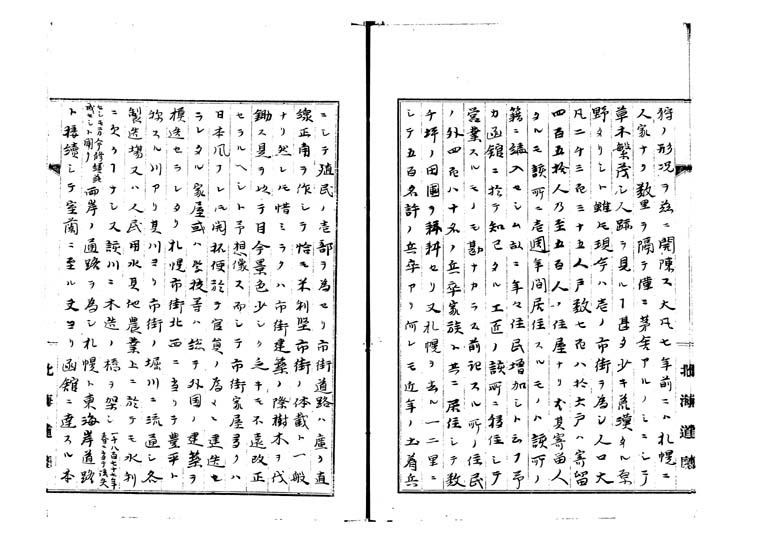 狩ノ形况ヲ玆ニ開陳ス大凡七年前ニハ札幌ニ
人家ナク数里ヲ隔テ僅ニ茅屋アルノミニシテ
草木繁茂シ人蹟ヲ見ルヿ甚タ少キ荒漠タル原
野タリシト雖モ現今ハ壱ノ市街ヲ為シ人口大
凡二千三百三十五人戸数七百八於大戸ハ寄留
四百五拾人乃至五百人ハ住屋ナリ尤其寄留人
タルモ該所ニ壱週年間居住スルモノハ該所ノ
籍ニ編入セシム故ニ年々住民増加シト云フ予
カ函館ニ於テ知已タル工匠ノ該所ニ移住シテ
営業スルモノモ勘ナカラス前記スル所ノ住民
ノ外四百八十名ノ兵卒家族ト共ニ居住シテ数
千坪ノ田圃ヲ耕耘セリ又札幌ヲ去ル一二里ニ
シテ五百名許ノ兵卒アリ何レモ近年ノ土着兵
北海道廳
ニシテ殖民ノ壱部ヲ為セリ市街道路ハ廣ク直
線正南ヲ作シテ恰モ米利堅市街ノ体裁ト一般
ナリ然レモ惜ミラクハ市街建築ノ際樹木ヲ伐
鋤ス見ヲ以テ目今景色少シク乏キモ不遠改正
セラルヘシト予想像ス而シテ市街家屋多クハ
日本風ナレモ開拓使於テ官員ノ為メニ建造セ
ラレタル家屋或ハ学校等ハ総テ外国ノ建築ヲ
模造セラレタリ札幌市街北西ニ当リテ豊平ト
称スル川アリ其川ヨリ市街ノ堀川ニ流通シ各
製造場又ハ人民用水及地農業上ニ於テモ水利
ニ欠クヿナシ又該川ニ木造ノ橋ヲ架シ一千八百七十七年
西岸ノ通路ヲ為シ札幌ト東海岸道路
ト接續シテ室蘭ニ至ル丈ヨリ函館ニ達スル本
北海道廳